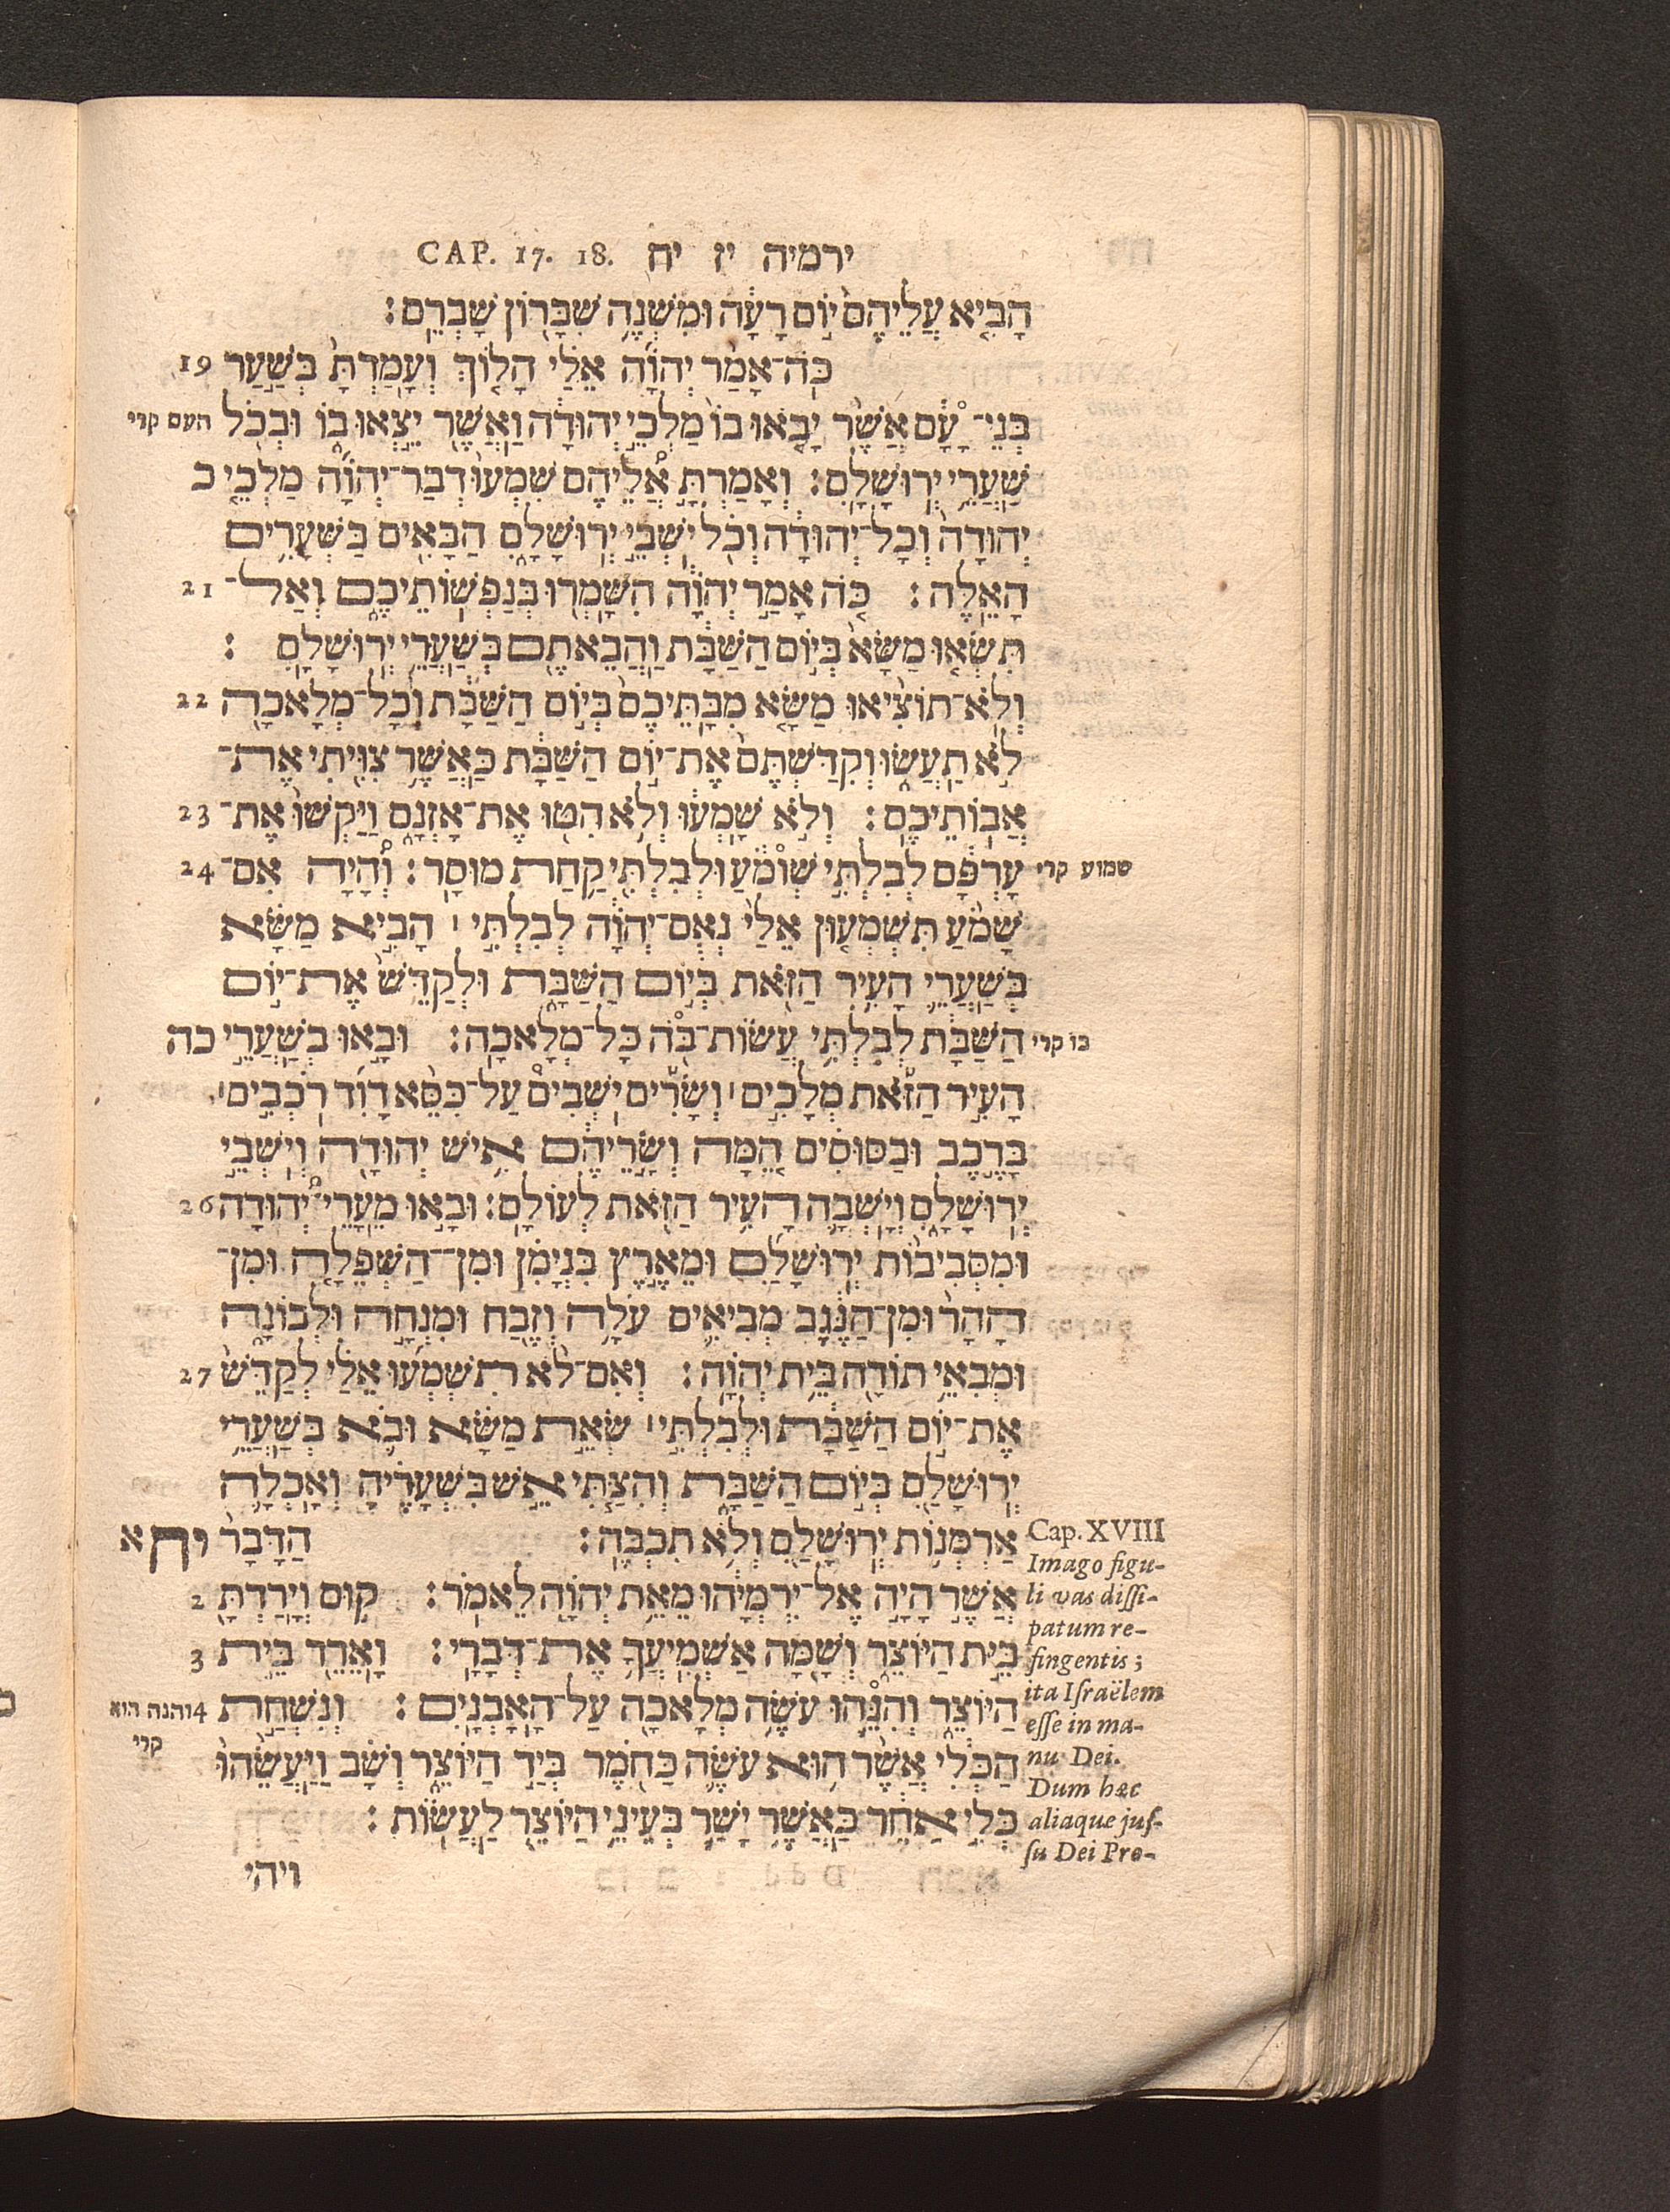 CAP. 17. 18. ירמיה יז יח
הָבִ֤יא עֲלֵיהֶם֙ י֣וֹם רָעָ֔ה וּמִשְׁנֶ֥ה שִׁבָּר֖וֹן שָׁבְרֵֽם׃
כֹּה־אָמַ֨ר יְהוָ֜ה אֵלַ֗י הָלֹ֤ךְ וְעָֽמַדְתָּ֙ בְּשַׁ֣עַר 19
בְּנֵי־ עָ֔ם אֲשֶׁ֨ר יָבֹ֤אוּ בוֹ֙ מַלְכֵ֣י יְהוּדָ֔ה וַאֲשֶׁ֖ר יֵ֣צְאוּ ב֑וֹ וּבְכֹ֖ל העם קרי
שַׁעֲרֵ֥י יְרוּשָׁלָֽםִ׃ וְאָמַרְתָּ֣ אֲ֠לֵיהֶם שִׁמְע֨וּ דְבַר־יְהוָ֜ה מַלְכֵ֤י כ
יְהוּדָה֙ וְכָל־יְהוּדָ֔ה וְכֹ֖ל יֹשְׁבֵ֣י יְרוּשָׁלָ֑םִ הַבָּאִ֖ים בַּשְּׁעָרִ֥ים
הָאֵֽלֶּה׃ כֹּ֚ה אָמַ֣ר יְהוָ֔ה הִשָּׁמְר֖וּ בְּנַפְשֽׁוֹתֵיכֶ֑ם וְאַל־ 21
תִּשְׂא֤וּ מַשָּׂא֙ בְּי֣וֹם הַשַּׁבָּ֔ת וַהֲבֵאתֶ֖ם בְּשַׁעֲרֵ֥י יְרוּשָׁלָֽםִ׃
וְלֹא־תוֹצִ֨יאוּ מַשָּׂ֤א מִבָּֽתֵּיכֶם֙ בְּי֣וֹם הַשַּׁבָּ֔ת וְכָל־מְלָאכָ֖ה 22
לֹ֣א תַעֲשׂ֑וּ וְקִדַּשְׁתֶּם֙ אֶת־י֣וֹם הַשַּׁבָּ֔ת כַּאֲשֶׁ֥ר צִוִּ֖יתִי אֶת־
אֲבֽוֹתֵיכֶֽם׃ וְלֹ֣א שָֽׁמְע֔וּ וְלֹ֥א הִטּ֖וּ אֶת־אָזְנָ֑ם וַיַּקְשׁוּ֙ אֶת־ 23
עָרְפָּ֔ם לְבִלְתִּ֣י שׁוֹמֵ֔עַ וּלְבִלְתִּ֖י קַ֥חַת מוּסָֽר׃ וְ֠הָיָה אִם־ 24 שמוע קרי
שָׁמֹ֨עַ תִּשְׁמְע֤וּן אֵלַי֙ נְאֻם־יְהוָ֔ה לְבִלְתִּ֣י ׀ הָבִ֣יא מַשָּׂ֗א
בְּשַׁעֲרֵ֛י הָעִ֥יר הַזֹּ֖את בְּי֣וֹם הַשַּׁבָּ֑ת וּלְקַדֵּשׁ֙ אֶת־י֣וֹם
הַשַּׁבָּ֔ת לְבִלְתִּ֥י עֲשֽׂוֹת־בֹּ֖ה כָּל־מְלָאכָֽה׃ וּבָ֣אוּ בְשַׁעֲרֵ֣י כה בו קרי
הָעִ֣יר הַזֹּ֡את מְלָכִ֣ים ׀ וְשָׂרִ֡ים יֹשְׁבִים֩ עַל־כִּסֵּ֨א דָוִ֜ד רֹכְבִ֣ים ׀
בָּרֶ֣כֶב וּבַסּוּסִ֗ים הֵ֚מָּה וְשָׂ֣רֵיהֶ֔ם אִ֥ישׁ יְהוּדָ֖ה וְיֹשְׁבֵ֣י
יְרוּשָׁלָ֑םִ וְיָשְׁבָ֥ה הָעִ֥יר הַזֹּ֖את לְעוֹלָֽם׃ וּבָ֣אוּ מֵעָרֵֽי־יְ֠הוּדָה 26
וּמִסְּבִיב֨וֹת יְרוּשָׁלַ֜םִ וּמֵאֶ֣רֶץ בִּנְיָמִ֗ן וּמִן־הַשְּׁפֵלָ֤ה וּמִן־
הָהָר֙ וּמִן־הַנֶּ֔גֶב מְבִאִ֛ים עֹלָ֥ה וְזֶ֖בַח וּמִנְחָ֣ה וּלְבוֹנָ֑ה
וּמְבִאֵ֥י תוֹדָ֖ה בֵּ֥ית יְהוָֽה׃ וְאִם־לֹ֨א תִשְׁמְע֜וּ אֵלַ֗י לְקַדֵּשׁ֙ 27
אֶת־י֣וֹם הַשַּׁבָּ֔ת וּלְבִלְתִּ֣י ׀ שְׂאֵ֣ת מַשָּׂ֗א וּבֹ֛א בְּשַׁעֲרֵ֥י
יְרוּשָׁלַ֖םִ בְּי֣וֹם הַשַּׁבָּ֑ת וְהִצַּ֧תִּי אֵ֣שׁ בִּשְׁעָרֶ֗יהָ וְאָֽכְלָ֛ה
אַרְמְנ֥וֹת יְרוּשָׁלַ֖םִ וְלֹ֥א תִכְבֶּֽה׃ הַדָּבָר֙ יח א
אֲשֶׁ֣ר הָיָ֣ה אֶֽל־יִרְמְיָ֔הוּ מֵאֵ֥ת יְהוָ֖ה לֵאמֹֽר׃ ק֥וּם וְיָרַדְתָּ֖ 2
בֵּ֣ית הַיּוֹצֵ֑ר וְשָׁ֖מָּה אַשְׁמִֽיעֲךָ֥ אֶת־דְּבָרָֽי׃ וָאֵרֵ֖ד בֵּ֣ית 3
הַיּוֹצֵ֑ר וְהִנֵּ֛הוּ עֹשֶׂ֥ה מְלָאכָ֖ה עַל־הָאָבְנָֽיִם׃ וְנִשְׁחַ֣ת 4 והנה הוא
קרי
הַכְּלִ֗י אֲשֶׁ֨ר ה֥וּא עֹשֶׂ֛ה כַּחֹ֖מֶר בְּיַ֣ד הַיּוֹצֵ֑ר וְשָׁ֗ב וַֽיַּעֲשֵׂ֙הוּ֙
כְּלִ֣י אַחֵ֔ר כַּאֲשֶׁ֥ר יָשַׁ֛ר בְּעֵינֵ֥י הַיּוֹצֵ֖ר לַעֲשֽׂוֹת׃
ויהי
Cap. XVIII
Imago figu-
li vas dissi-
patum re-
fingentis;
ita Israëlem
esse in ma-
nu Dei.
Dum hæc
aliaque jus-
su Dei Pro-